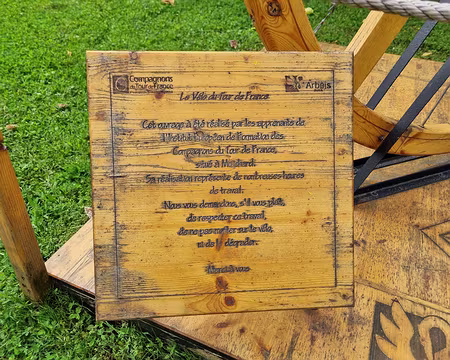 Compagnons
du Tour de France
Arbois
Le Vélo du Tour de France
Cet ouvrage à été réalisé par les apprenants de
l'Institut Européen de Formation des
Compagnons du Tour de France,
situé à Mouchard.
Sa réalisation représente de nombreuses heures
de travail.
Nous vous demandons, s'il vous plaît,
de respecter ce travail,
de ne pas monter sur le vélo,
ni de le dégrader.